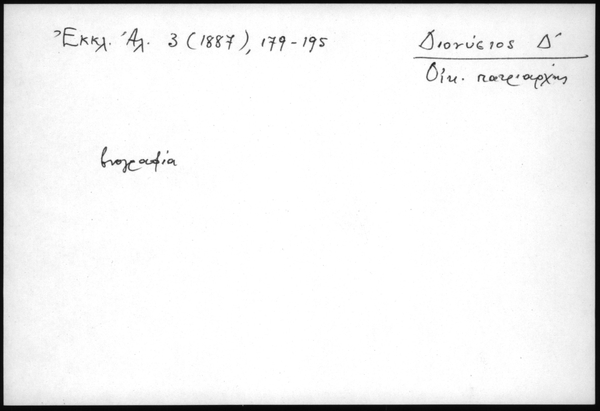 Ἐκκλ. Ἀλ. 3 (1887), 179-195
Διονύσιος Δ΄
Οἰκ. πατριάρχης
βιογραφία